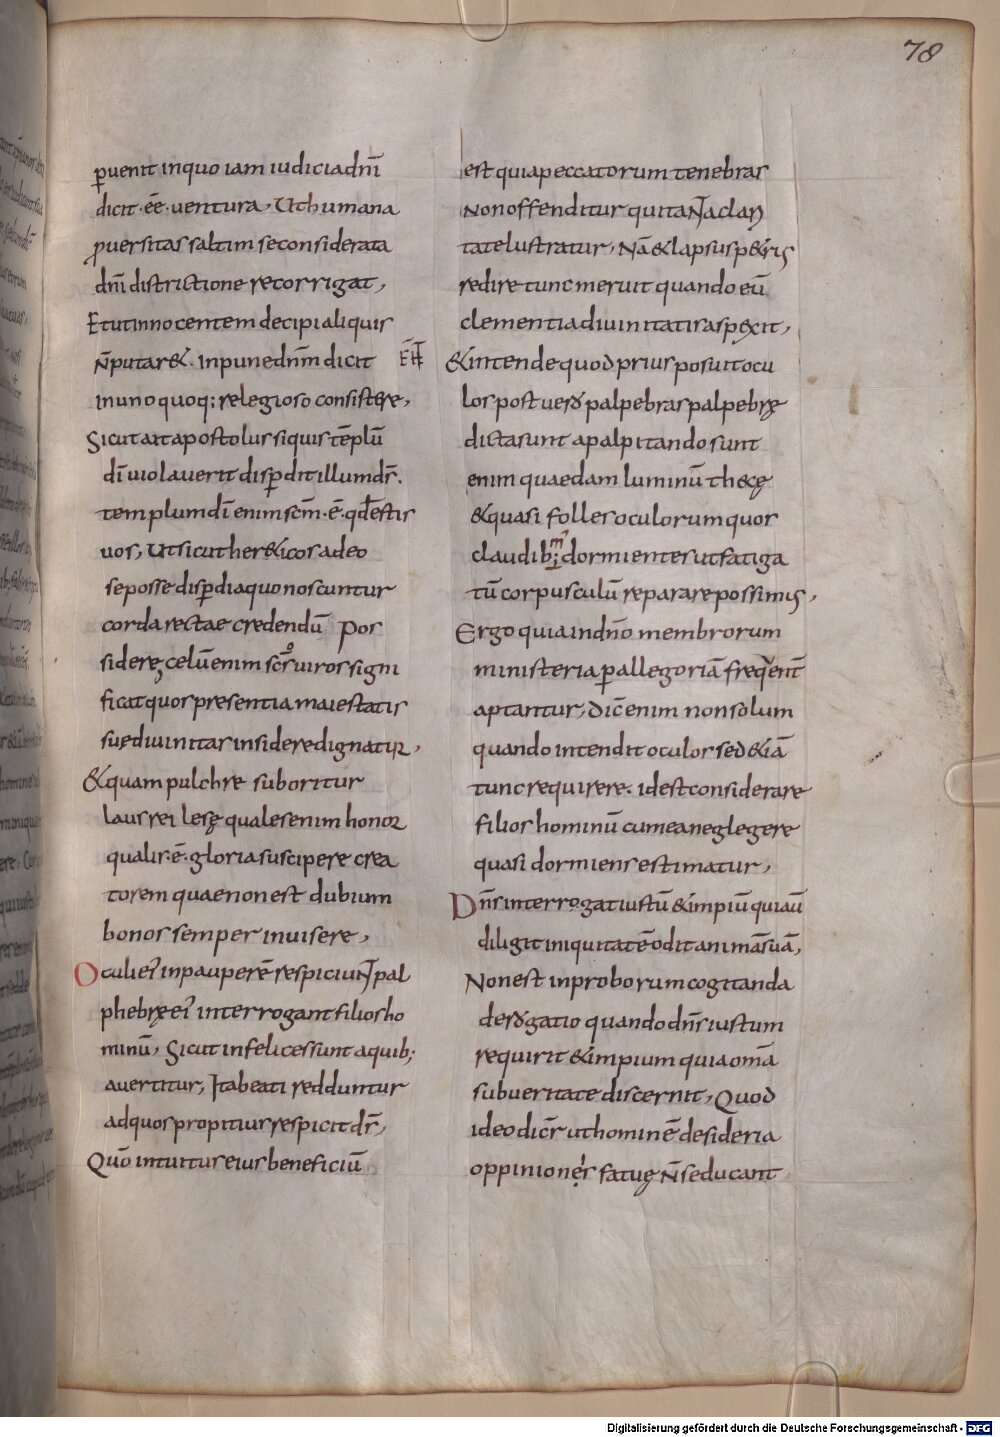 78
ꝑuenit inquo iam iudicia dn̄i
dicit·eē·ventura, Ut humana
ꝑuersitas saltim se considerata
dn̄i districtione recorrigat,
Et ut innocentem decipi aliquis
n̄ putar&. inpune dn̄m dicit
inuno quoq; relegioso consistere,
Sicut ait apostolus siquis tēplū
dī violaverit disꝑdit illum d̄s.
templum dī enim sc̄m·ē·qd̄ estis
uos, Ut sicut her&icos adeo
se posse disꝑdi aquo noscuntur
corda rectae credendū Por
sidereȝ celū enim sc̄os viros signi
ficat quos presentia maiestatis
suę divinitas insidere dignatur,
& quam pulchre suboritur
laus rei lesę quales enim honor
qualis·ē·gloria suscipere crea
torem quae non est dubium
bonos semper invisere,
Oculi ei' inpauperē respiciunt pal
phebrę ei' interrogant filios ho
minū, Sicut infelices sunt aquib;
avertitur, Ita beati redduntur
ad quos propitius respicit d̄s,
Quō intuitus eius beneficiū
est quia peccatorum tenebras
Non offenditur qui tanta clari
tate lustratur, Nā & lapsus p&rus
redire tunc meruit quando eū
clementia divinitatis aspexit,
& intende quod prius posuit ocu
los post vero palpebras palpebrę
dicta sunt apalpitando sunt
enim quaedam luminū thecę
& quasi folles oculorum quos
claudim' dormientes ut fatiga
tū corpusculū reparare possimus,
Ergo quia indn̄o membrorum
ministeria ꝑ allegoriā freqūent̄
aptantur, dic̄ enim non solum
quando intendit oculos sed &iā
tunc requirere. id est considerare
filios hominū cum ea neglegere
quasi dormiens estimatur,
Dn̄s interrogat iustū & impiū qui aū
diligit iniquitatē odit animā suā,
Non est inproborum cogitanda
derogatio quando dn̄s iustum
requirit & impium quia omā
sub veritate discernit, Quod
ideo dicr̄ ut hominē desideria
oppiniones fatuę n̄ seducant
Digitalisierung gefördert durch die Deutsche Forschungsgemeinschaft - DFG